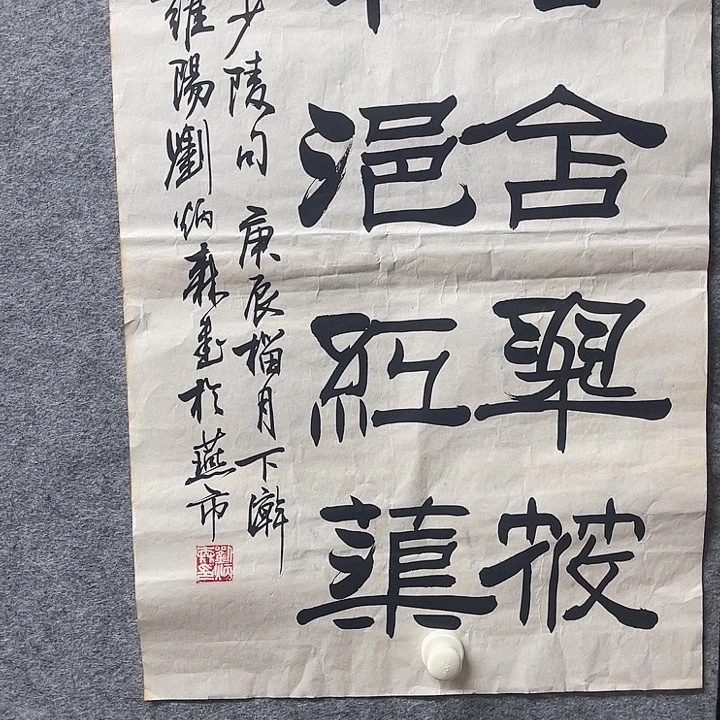 含翠筱
浥紅蕖
少陵句 庚辰榴月下澣
雍陽劉炳森書於燕市
劉炳森印